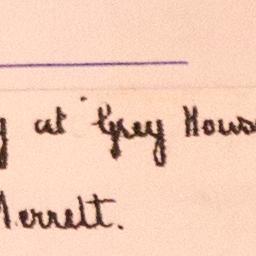 y at Grey Hous
Merrett.